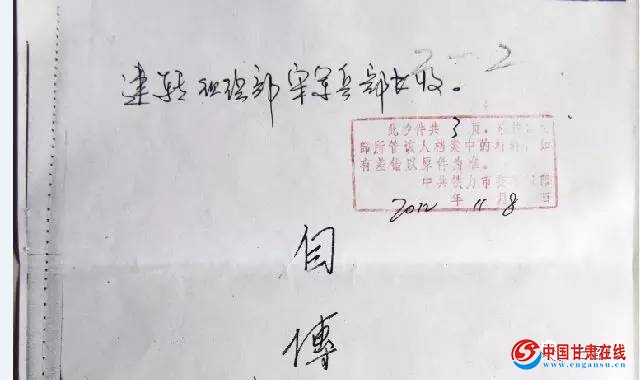 2-2
建 组织部 宋 部长收。
此复件共3页,
部所管该人档案中的材料,如
有差错以原件为准。
中共铁力市委
2012年11月8日
自
傳
中国甘肃在线
www.cngansu.cn